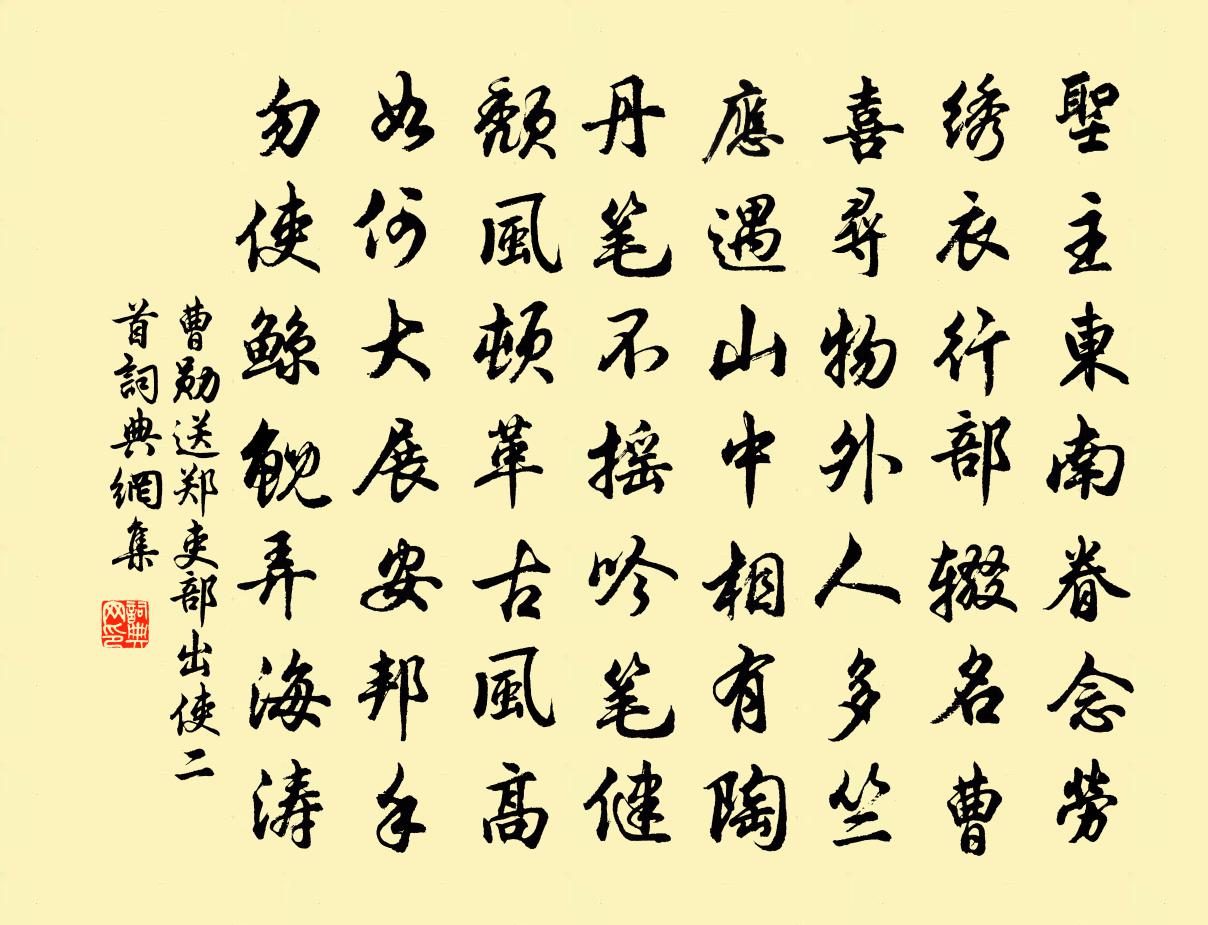 聖主東南眷念勞
绣衣行部辍名曹
喜尋物外人多竺
應遇山中相有陶
丹笔不摇吟笔健
颓風頓革古風高
如何大展安邦手
勿使鲸鲵弄海涛
曹勛送郑吏部出使二
首詞典網集
詞典网印